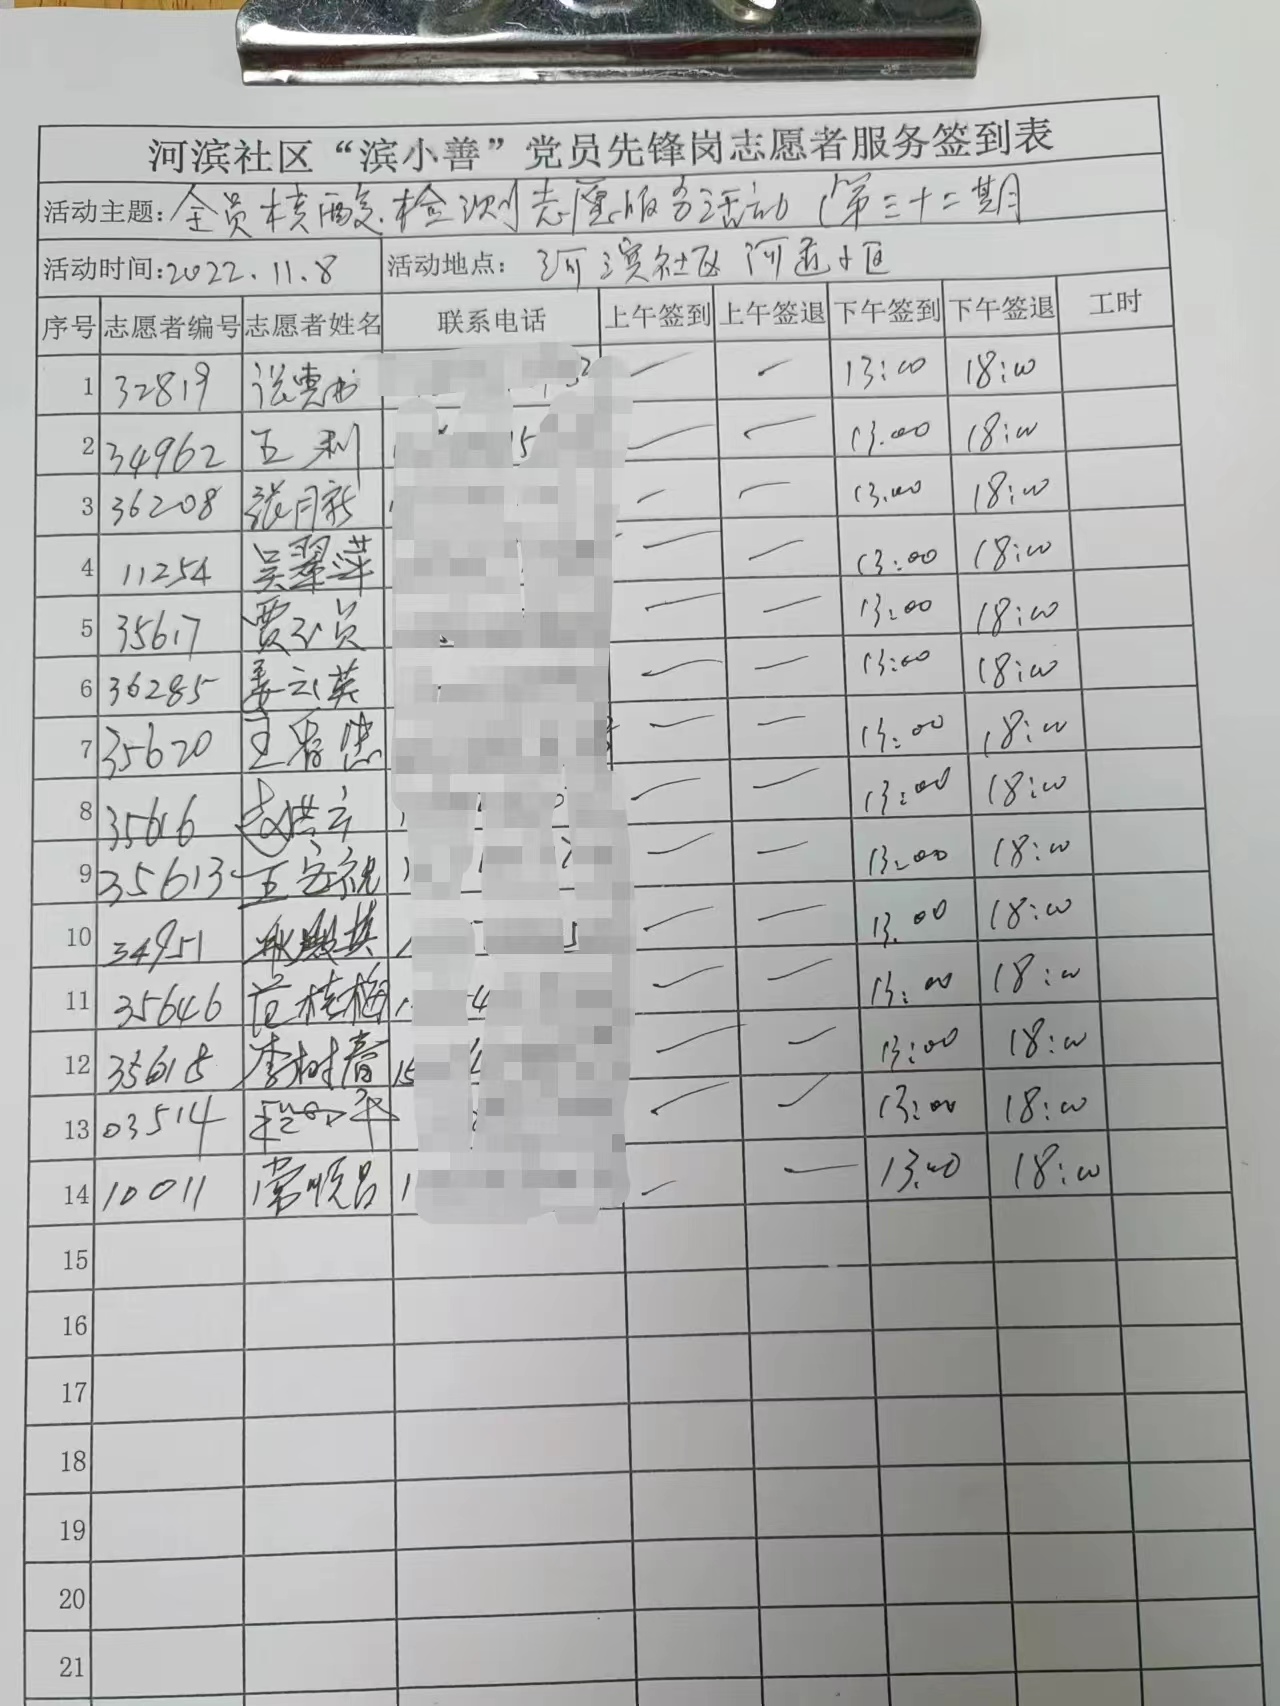 河滨社区“滨小善”党员先锋岗志愿者服务签到表
活动主题: 全员核酸检测志愿服务活动 (第三十二期
活动时间: 2022.11.8 活动地点: 河滨社区 小区
序号 志愿者编号 志愿者姓名 联系电话 上午签到 上午签退 下午签到 下午签退 工时
1 32819 — — 13:00 18:00
2 34962 王利 — — 13:00 18:00
3 36208 张月新 — — 13:00 18:00
4 11254 吴翠萍 — — 13:00 18:00
5 35617 贾 员 — — 13:00 18:00
6 36285 姜云英 — — 13:00 18:00
7 35620 王春 — — 13:00 18:00
8 35616 赵 — — 13:00 18:00
9 35613 王 — — 13:00 18:00
10 34951 — — 13:00 18:00
11 35646 范桂梅 — — 13:00 18:00
12 35615 李树春 15 — — 13:00 18:00
13 03514 — — 13:00 18:00
14 10011 常顺昌 1 — — 13:00 18:00
15
16
17
18
19
20
21